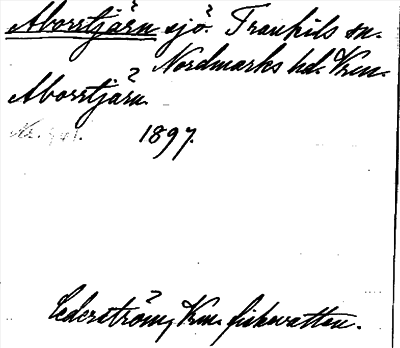 Aborrtjärn sjö. Trankils sn.
Nordmarks hd. Vrm.
Aborrtjärn.
1897.
Cederström, Vrm. fiskevatten.